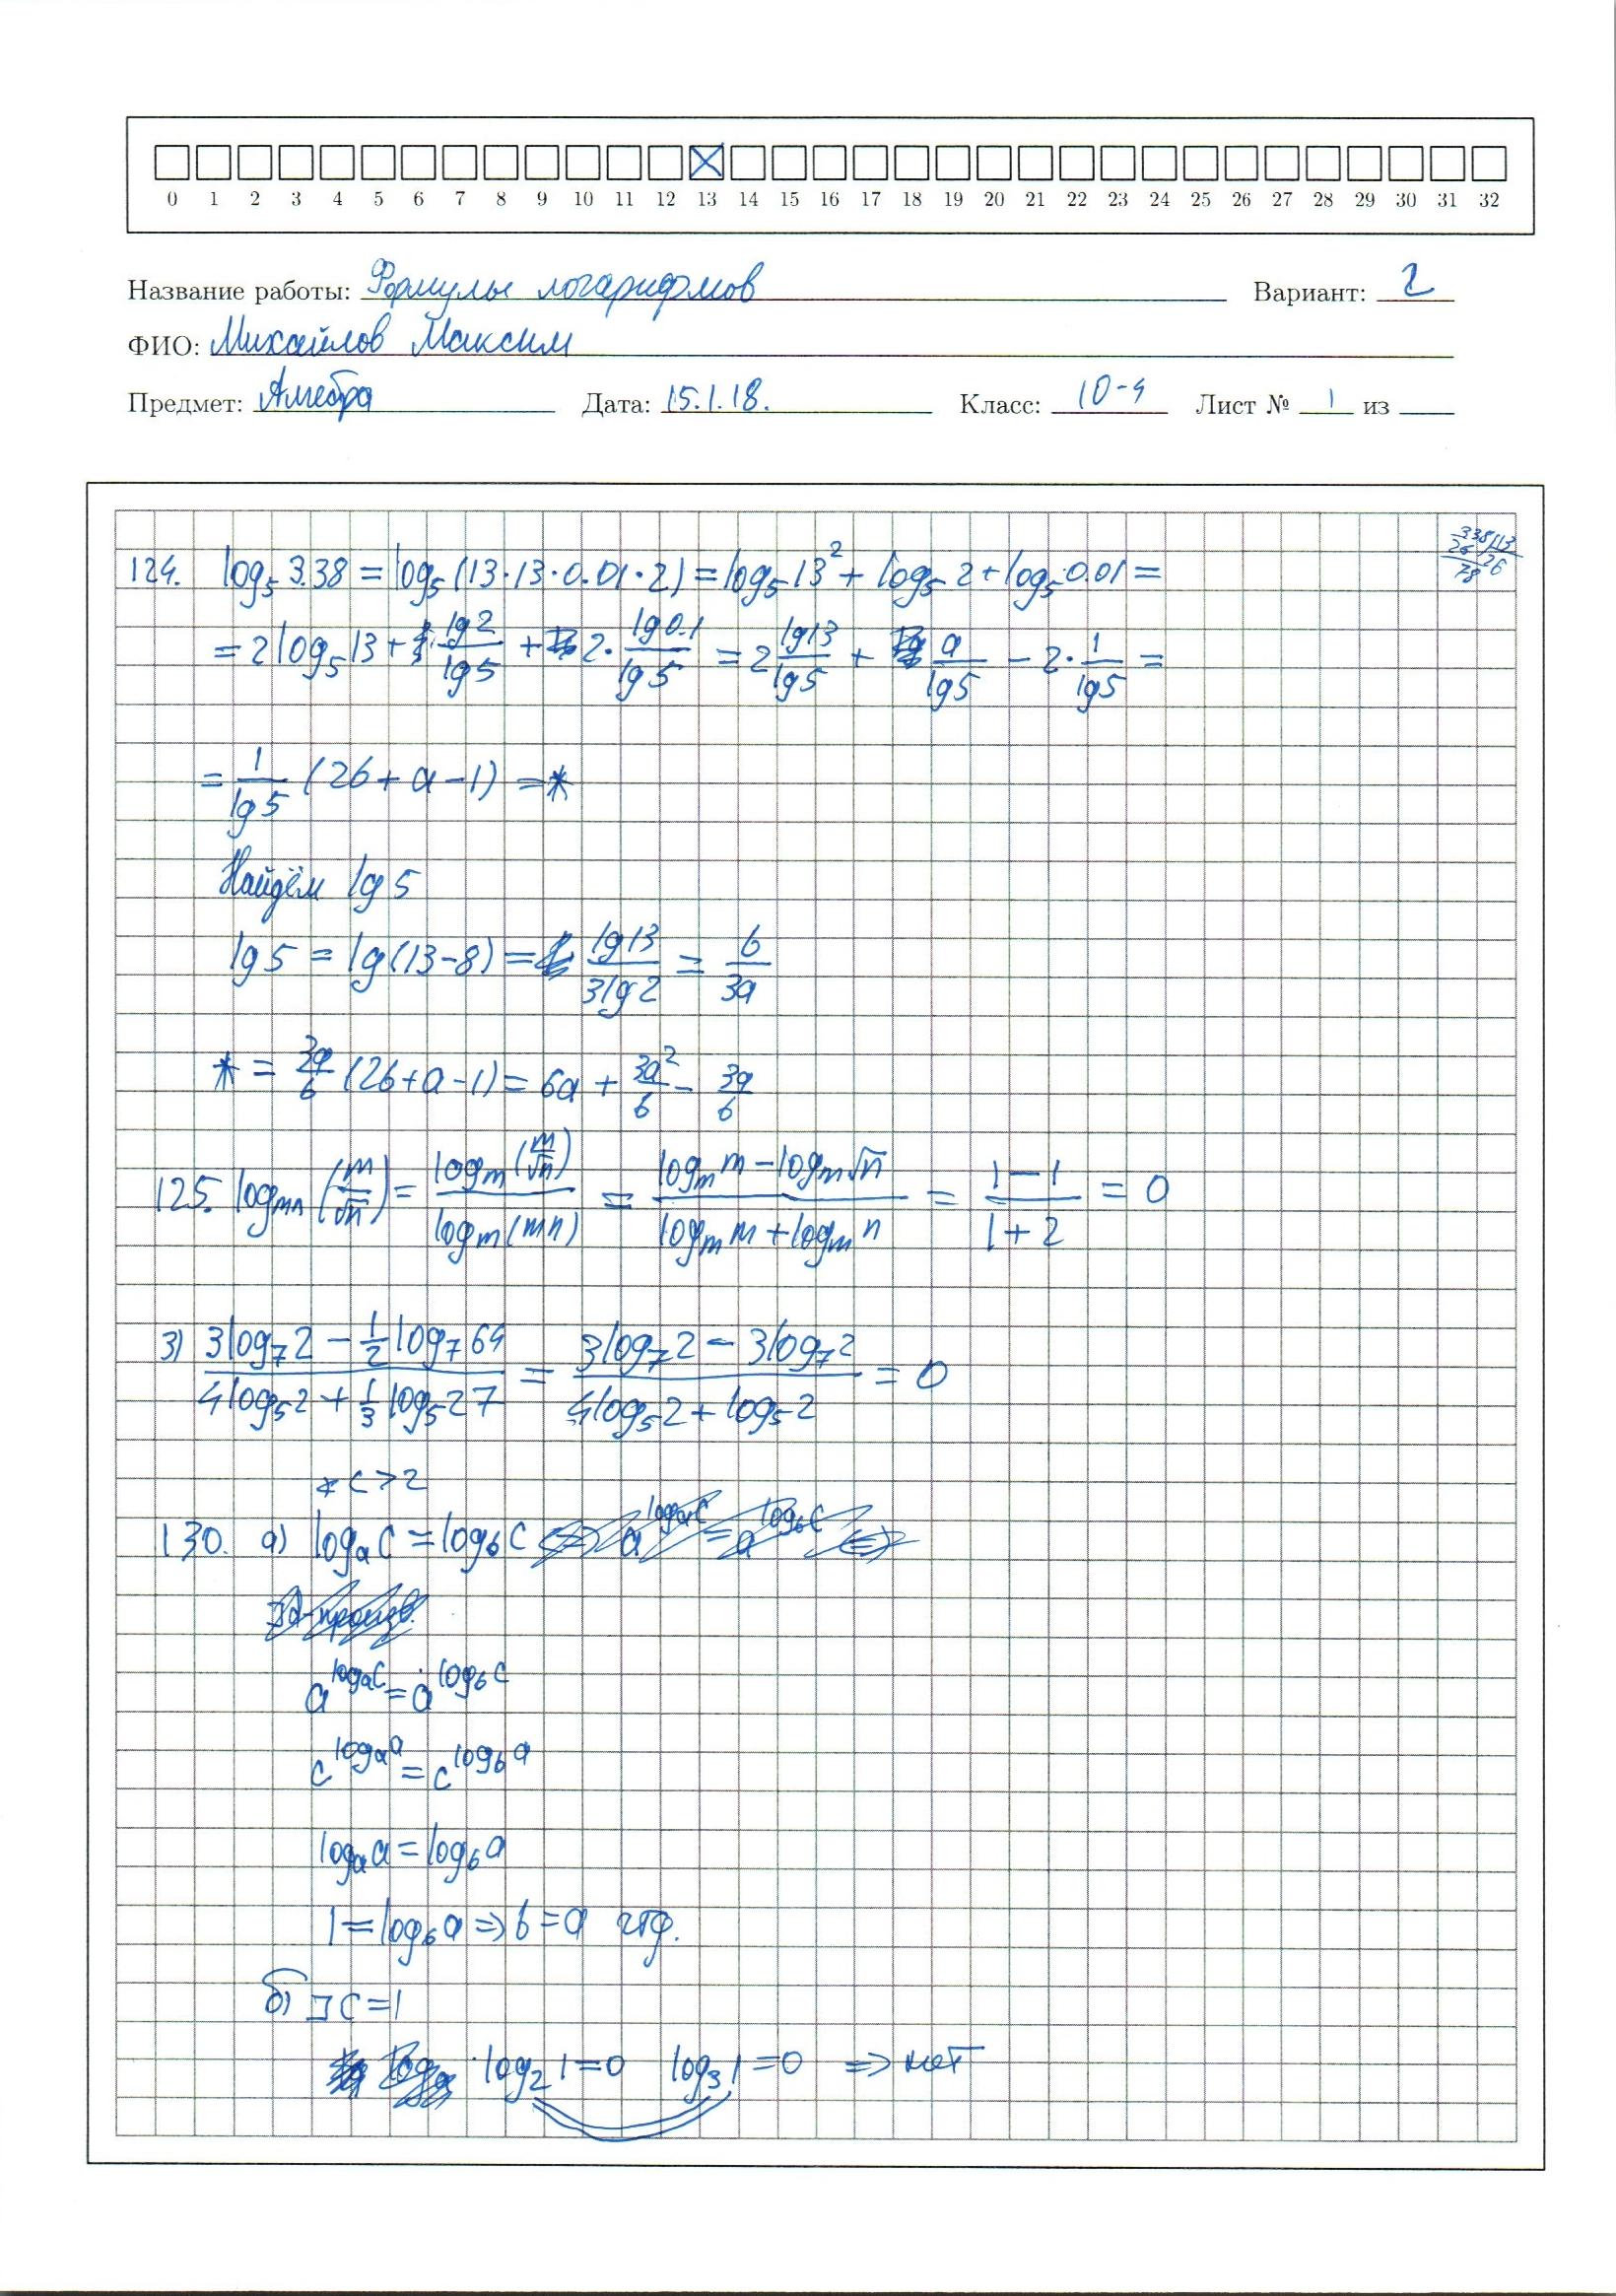 0 1 2 3 4 5 6 7 8 9 10 11 12 13 14 15 16 17 18 19 20 21 22 23 24 25 26 27 28 29 30 31 32
Название работы: Формулы логарифмов Вариант: 2
ФИО: Михайлов Максим
Предмет: Алгебра Дата: 15.1.18. Класс: 10-4 Лист № 1 из
338 | 13
26 | 26
78
124. log₅ 3.38 = log₅ (13·13·0.01·2) = log₅ 13² + log₅ 2 + log₅ 0.01 =
= 2 log₅ 13 + lg 2 / lg 5 + 2· lg 0.1 / lg 5 = 2 lg 13 / lg 5 + a / lg 5 − 2· 1 / lg 5 =
= 1 / lg 5 (2b + a − 1) = *
Найдём lg 5
lg 5 = lg(13−8) = lg 13 / 3 lg 2 = b / 3a
* = 3a / b (2b + a − 1) = 6a + 3a² / b − 3a / b
125. log_mn (m / √n) = log_m (m / √n) / log_m (mn) = (log_m m − log_m √n) / (log_m m + log_m n) = (1 − 1) / (1 + 2) = 0
3) (3 log₇ 2 − ½ log₇ 64) / (4 log₅ 2 + ⅓ log₅ 27) = (3 log₇ 2 − 3 log₇ 2) / (4 log₅ 2 + log₅ 2) = 0
* c > 2
130. а) log_a c = log_b c
a^(log_a c) = a^(log_b c)
c^(log_a a) = c^(log_b a)
log_a a = log_b a
1 = log_b a ⇒ b = a чтд.
б) ⊐ c = 1
log₂ 1 = 0 log₃ 1 = 0 ⇒ нет